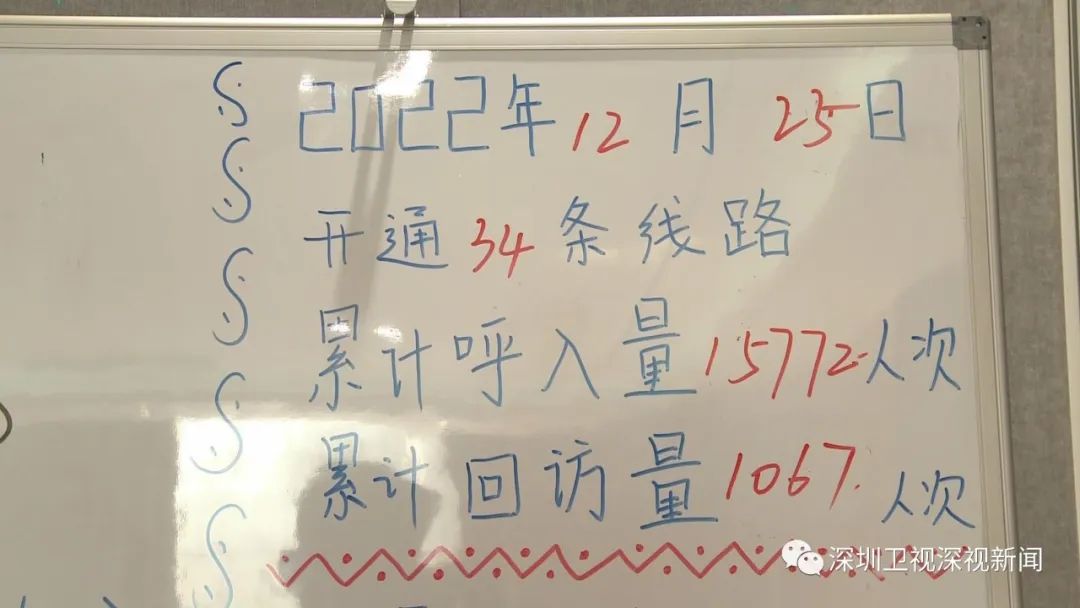 2022年12月25日
开通34条线路
累计呼入量15772人次
累计回访量1067人次
深圳卫视深视新闻